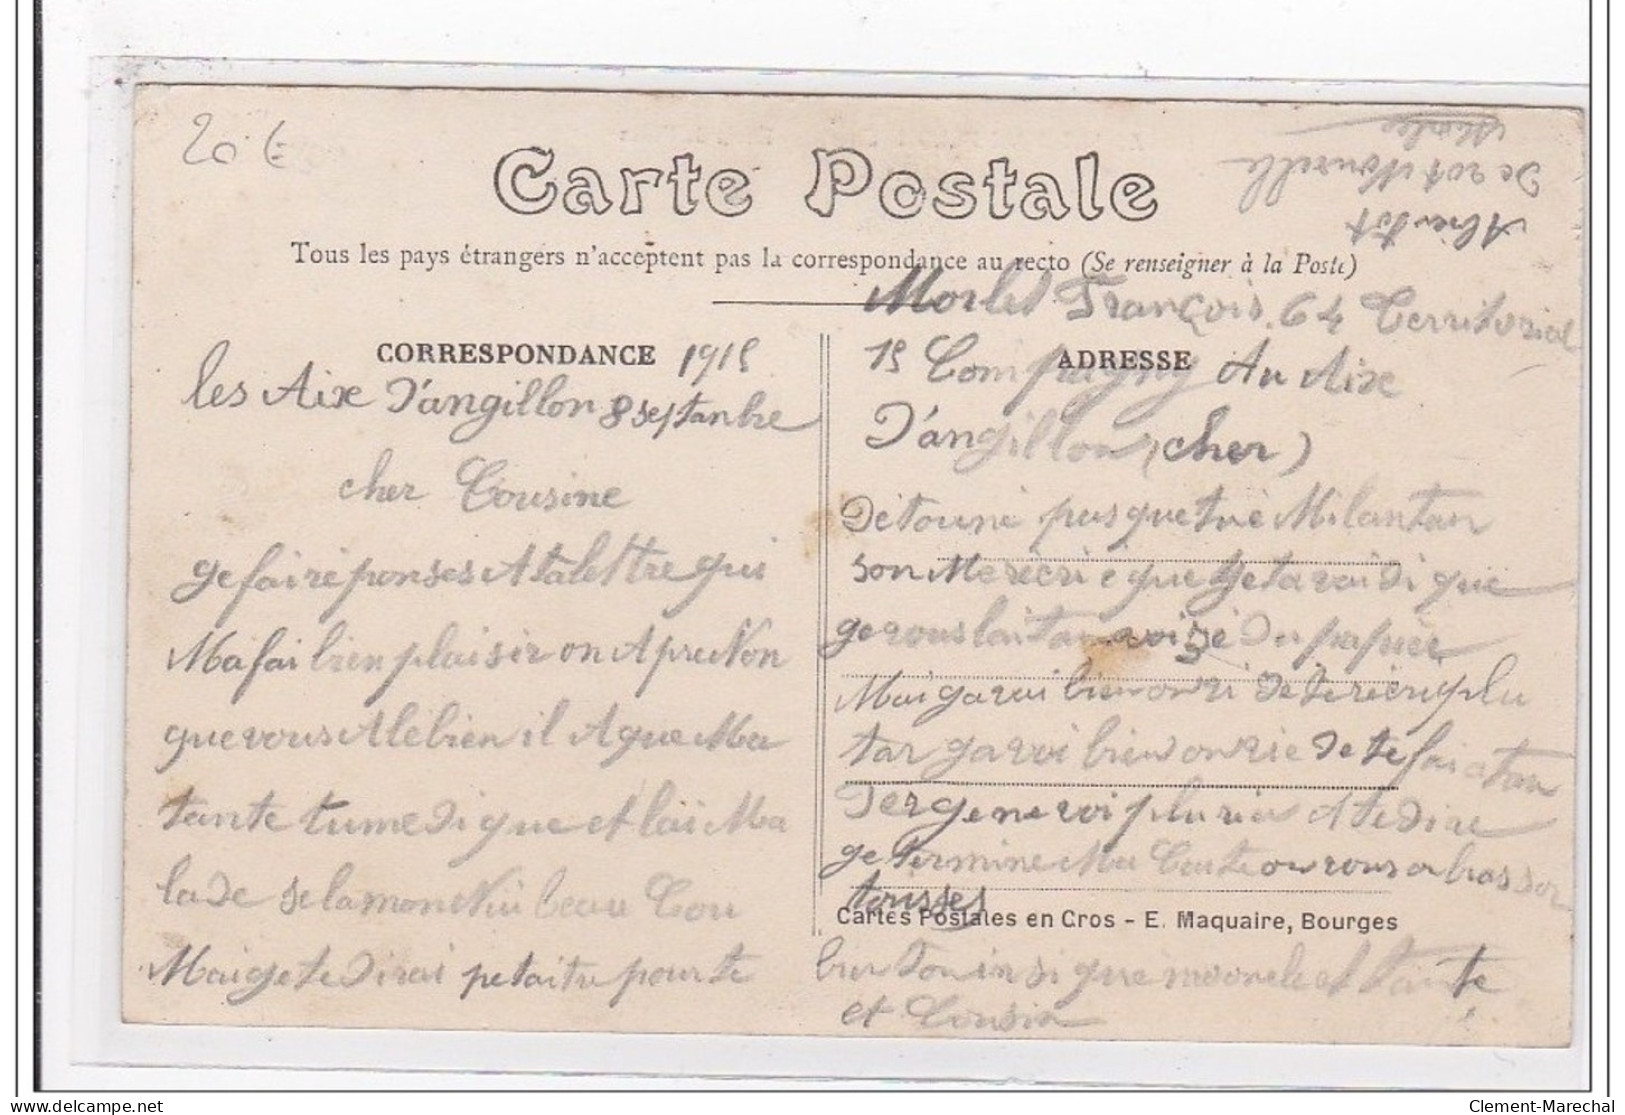 20 €
Carte Postale
Tous les pays étrangers n'acceptent pas la correspondance au recto (Se renseigner à la Poste)
CORRESPONDANCE 1915
les Aix D'angillon 8 septanbre
cher Cousine
ge fai réponses A ta lettre qui
Ma fai bien plaisir on Apre Non
que vous Ale bien il A que Ma
tante tu me Di que et lai Ma
lade se la mon
beau Cou
Mai ge te Dirai petaitre pour te
Morlet François 64 Territorial
15 Compagny Au Aix
ADRESSE
D'angillon (cher)
Détouné pasque tu è Milantan
son Me récrie que ge ta vai di que
ge vous lai tan voizé Du papier
Mai gavai bien Te récri plu
tar gavoi bien De te fai atan
Der ge ne voi plu rien A te Dire
ge termine Ma Carte on vous anbrassan
tousses
Cartes Postales en Gros - E. Maquaire, Bourges
bien insi que et tante
et Cousin
Abientot
De vot Nouvelle
Morlet
Clement-Marechal